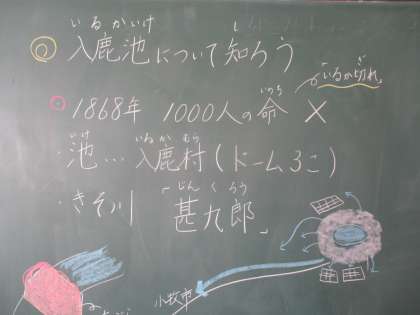 ◎ 入鹿池について知ろう
いるかいけ
し
いるか切れ
ぎ
⊙ 1868年 1000人の命 ×
いのち
池… 入鹿村(ドーム3こ)
いけ
いるか むら
・きそ川 「甚九郎」
じんくろう
小牧市